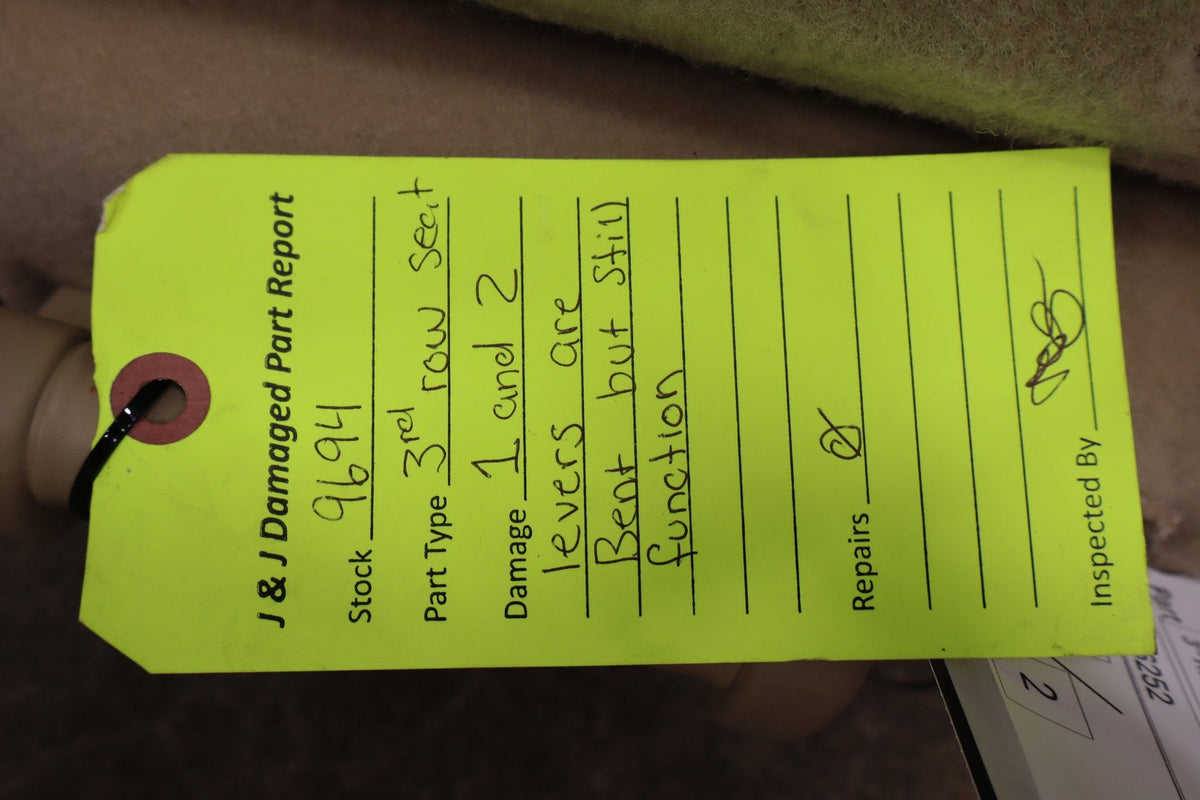 J & J Damaged Part Report
Stock 9694
Part Type 3rd row seat
Damage 1 and 2
levers are
Bent but still
function
Repairs Ø
Inspected By
2
6252